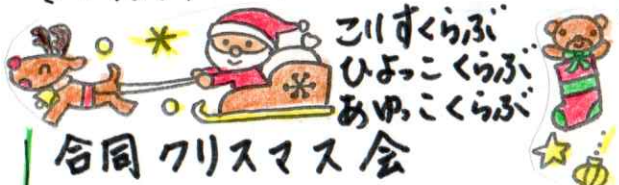 こりすくらぶ
ひよっこくらぶ
あゆっこくらぶ
合同クリスマス会